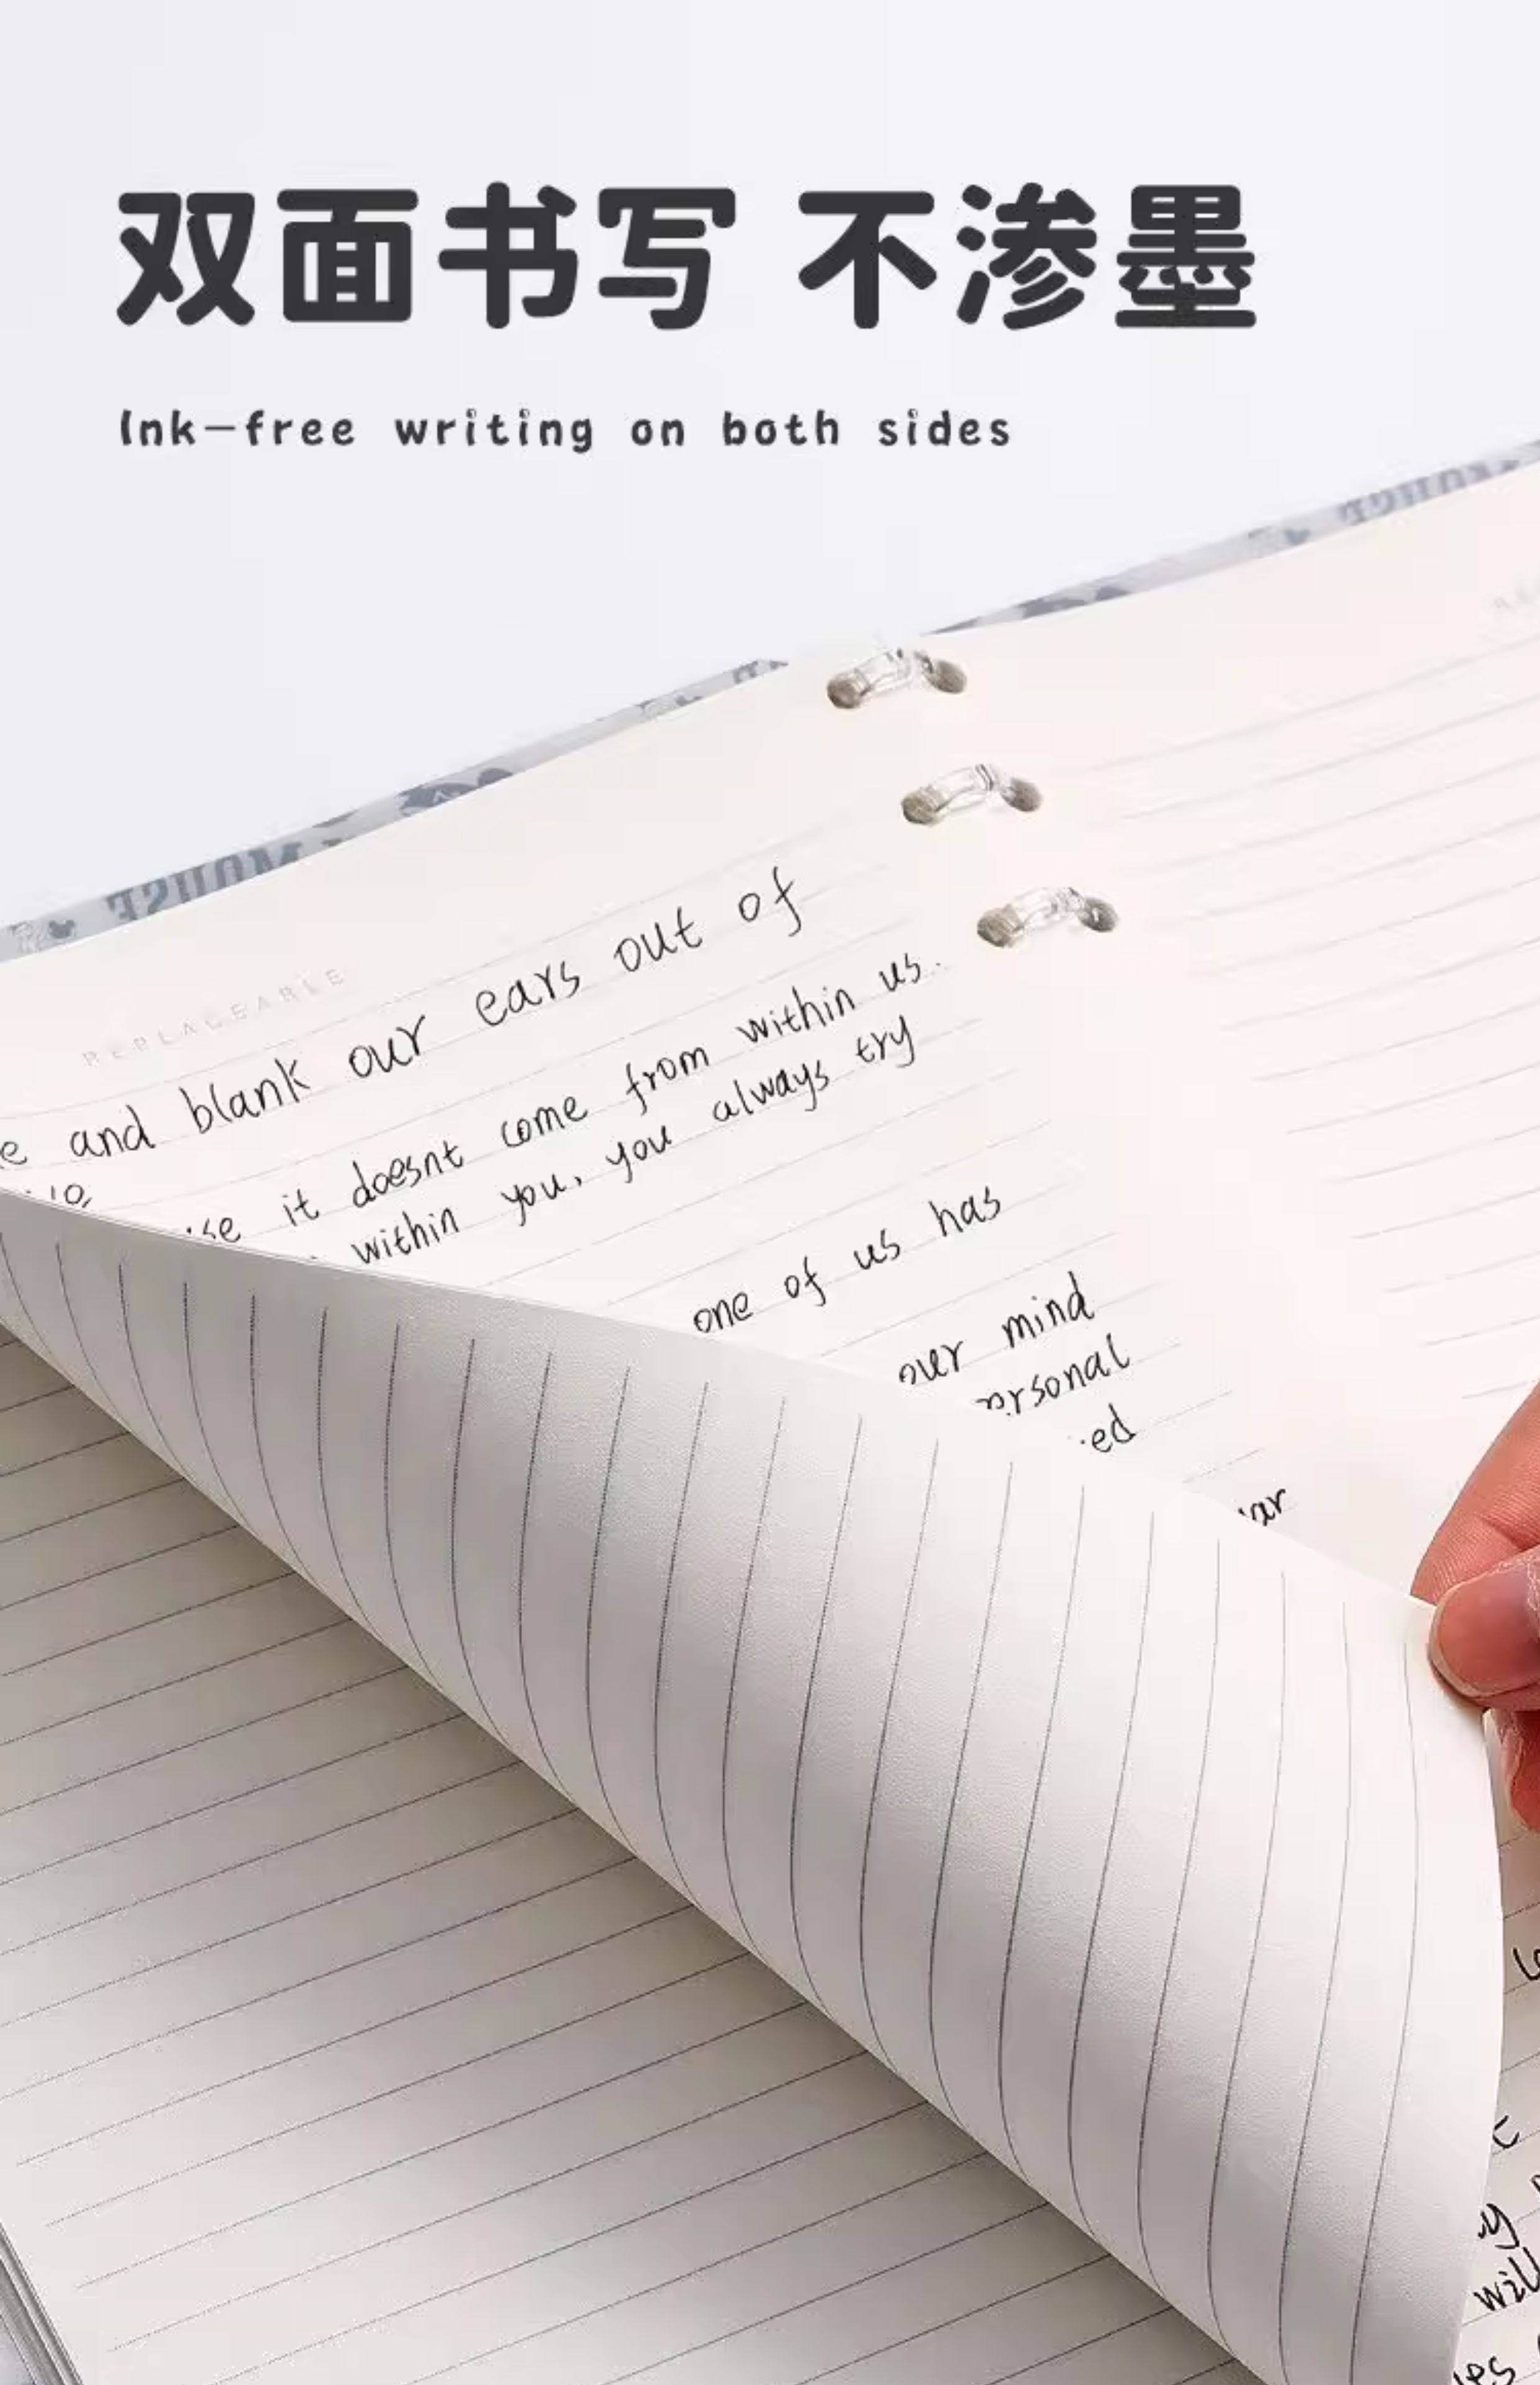 双面书写 不渗墨
Ink-free writing on both sides
MOUSE
REPLACEABLE
e and blank our ears out of
it doesnt come from within us.
within you, you always try
one of us has
our mind
ersonal
ed
will